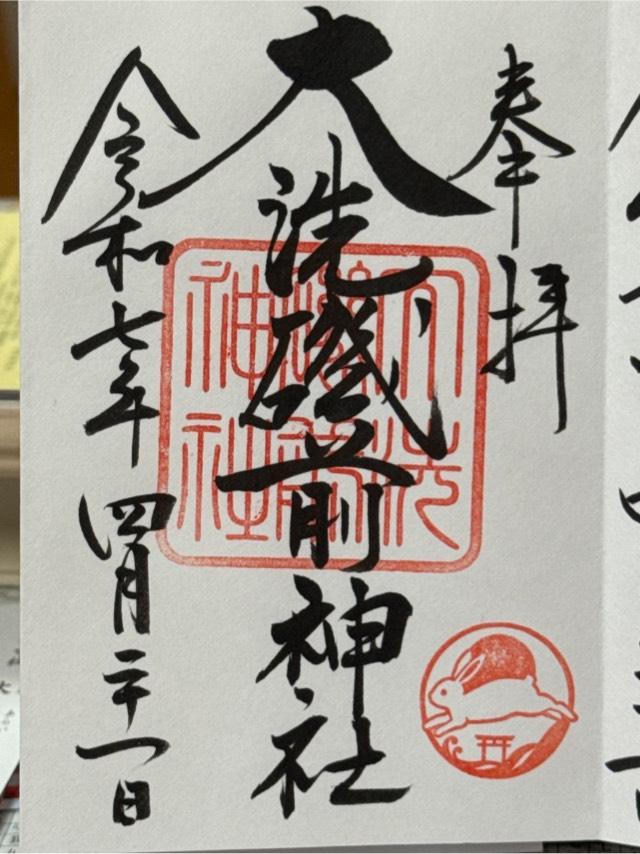 奉拝
大洗磯前神社
大洗
磯前
神社
令和七年四月二十一日